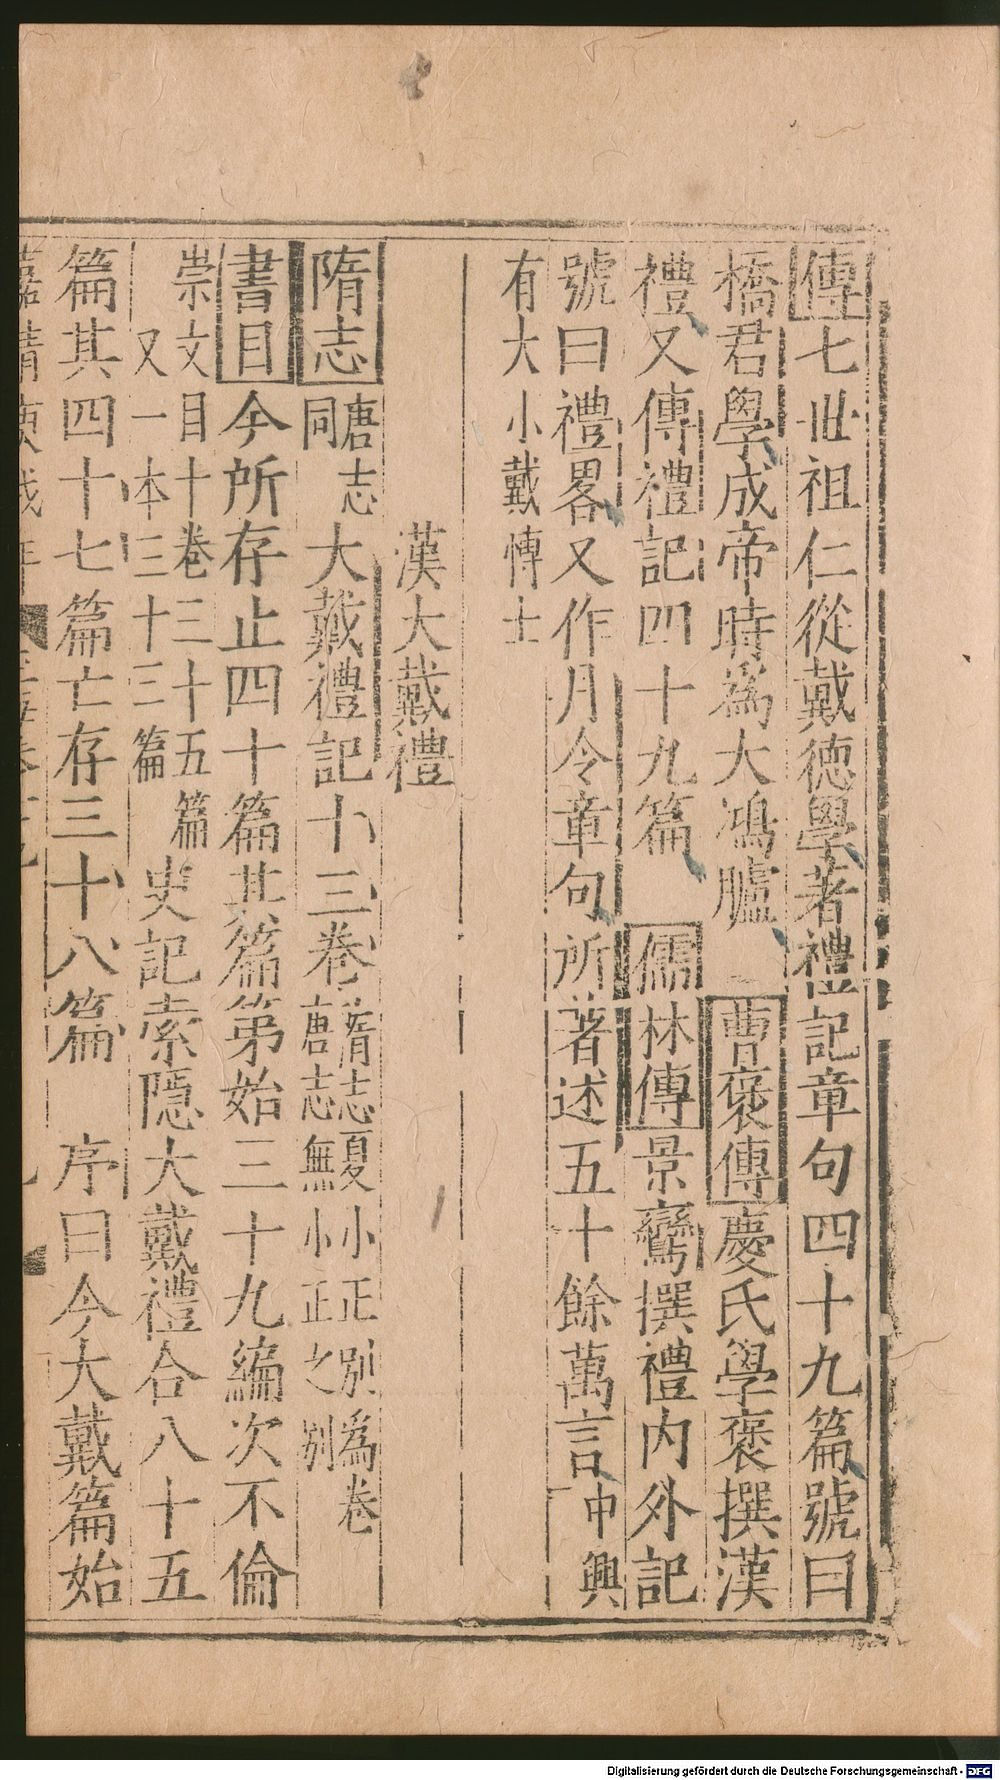 傳七世祖仁從戴德學著禮記章句四十九篇號曰
橋君學成帝時爲大鴻臚 曹褒傳慶氏學褒撰漢
禮又傳禮記四十九篇 儒林傳景鸞撰禮内外記
號曰禮畧又作月令章句所著述五十餘萬言中興
有大小戴博士
漢大戴禮
隋志唐志同大戴禮記十三卷隋志夏小正別爲卷唐志無小正之別
書目今所存止四十篇其篇第始三十九編次不倫
崇文目十卷三十五篇又一本三十三篇史記索隱大戴禮合八十五
篇其四十七篇亡存三十八篇 序曰今大戴篇始
Digitalisierung gefördert durch die Deutsche Forschungsgemeinschaft - DFG